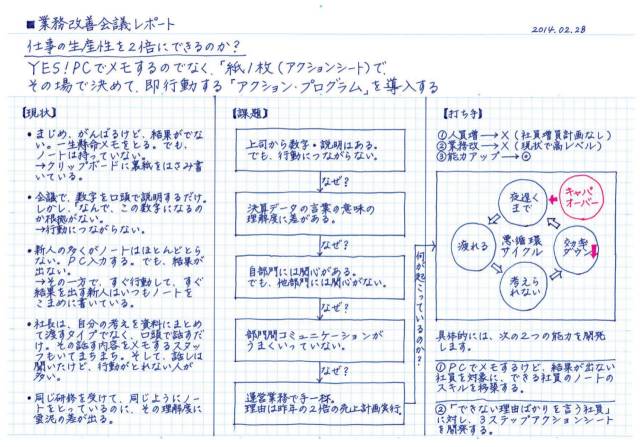 ■業務改善会議レポート
2014.02.28
仕事の生産性を2倍にできるのか?
YES!PCでメモするのでなく、「紙1枚(アクションシート)で、
その場で決めて、即行動する「アクション・プログラム」を導入する
【現状】
・まじめ、がんばるけど、結果がでな
い。一生懸命メモをとる。でも、
ノートは持っていない。
→クリップボードに裏紙をはさみ書
いている。
・会議で、数字を口頭で説明するだけ。
しかし、「なんで、この数字になるの
か根拠がない。
→行動につながらない。
・新人の多くがノートはほとんどとら
ない。PC入力する。でも、結果が
出ない。
→その一方で、すぐ行動して、すぐ
結果を出す新人はいつもノートを
こまめに書いている。
・社長は、自分の考えを資料にまとめ
て渡すタイプでなく、口頭で話すだ
け。その話す内容をメモするスタッ
フもいてまちまち。そして、話しは
聞いたけど、行動がとれない人が
多い。
・同じ研修を受けて、同じようにノー
トをとっているのに、その理解度に
雲泥の差が出る。
【課題】
上司から数字・説明はある。
でも、行動につながらない。
なぜ?
決算データの言葉の意味の
理解度に差がある。
なぜ?
自部門には関心がある。
でも、他部門には関心がない。
なぜ?
部門間コミュニケーションが
うまくいっていない。
なぜ?
運営業務で手一杯。
理由は昨年の2倍の売上計画実行。
何が起こっているのか?
【打ち手】
①人員増→×(社員増員計画なし)
②業務改→×(現状で高レベル)
③能力アップ→◎
夜遅く
まで
キャパ
オーバー
疲れる
悪循環
サイクル
効率
ダウン
考えら
れない
具体的には、次の2つの能力を開発
します。
①PCでメモするけど、結果が出ない
社員を対象に、できる社員のノートの
スキルを移築する。
②「できない理由ばかりを言う社員」
に対し、3ステップアクションシート
を開発する。